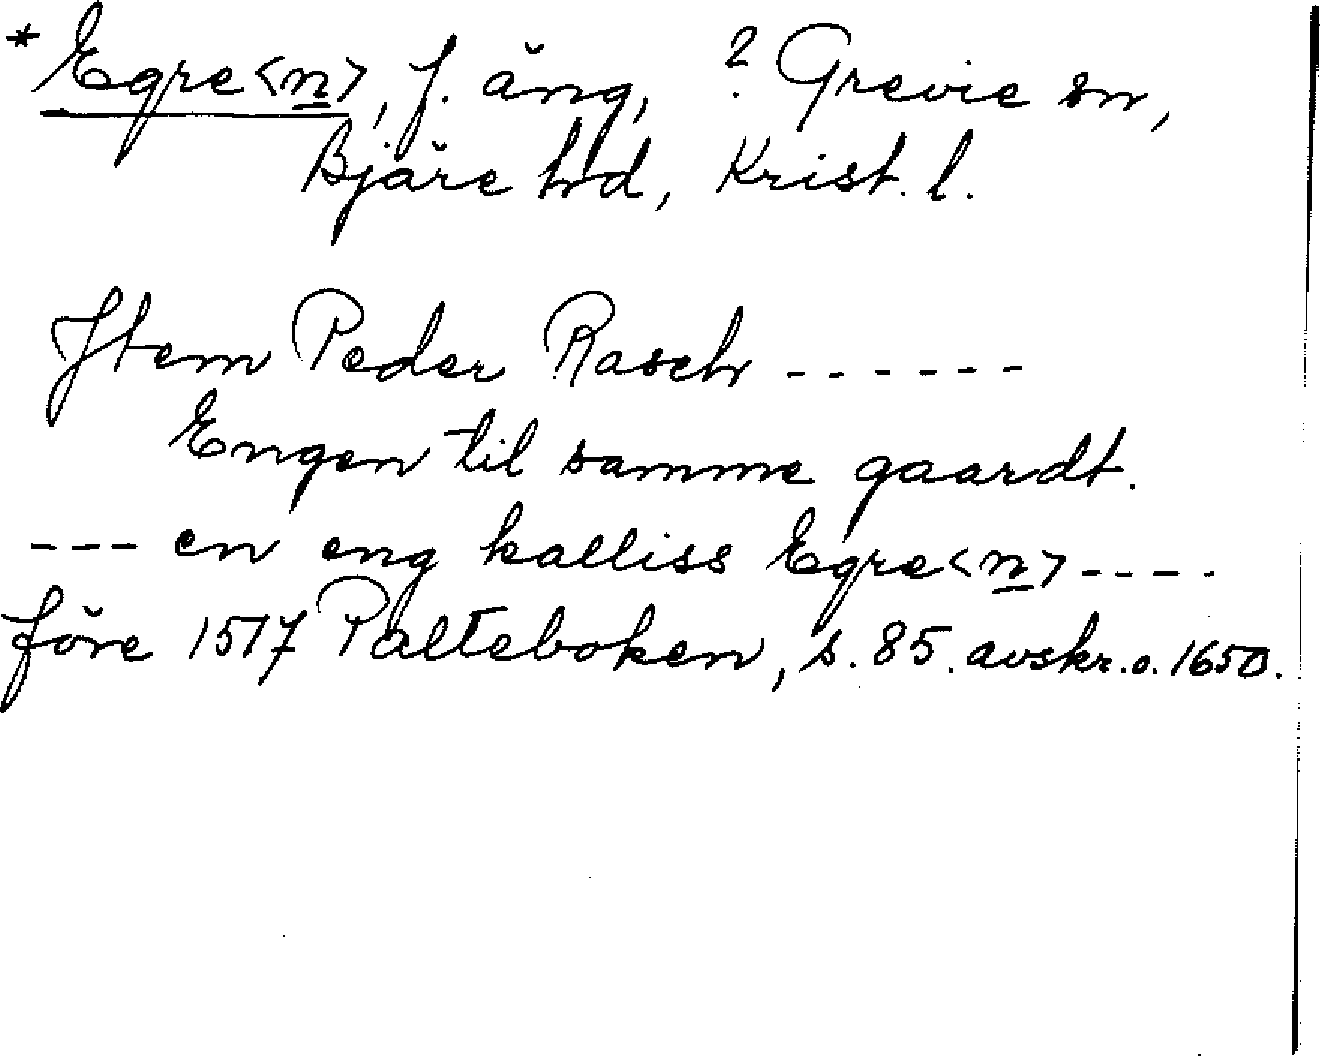 * Egre<n>, f. äng, ? Grevie sn,
Bjäre hd, Krist. l.
Item Peder Rasch ------
Engen til samme gaardt.
--- en eng kalliss Egre<n> ----
före 1517 Palteboken, s. 85. avskr. o. 1650.